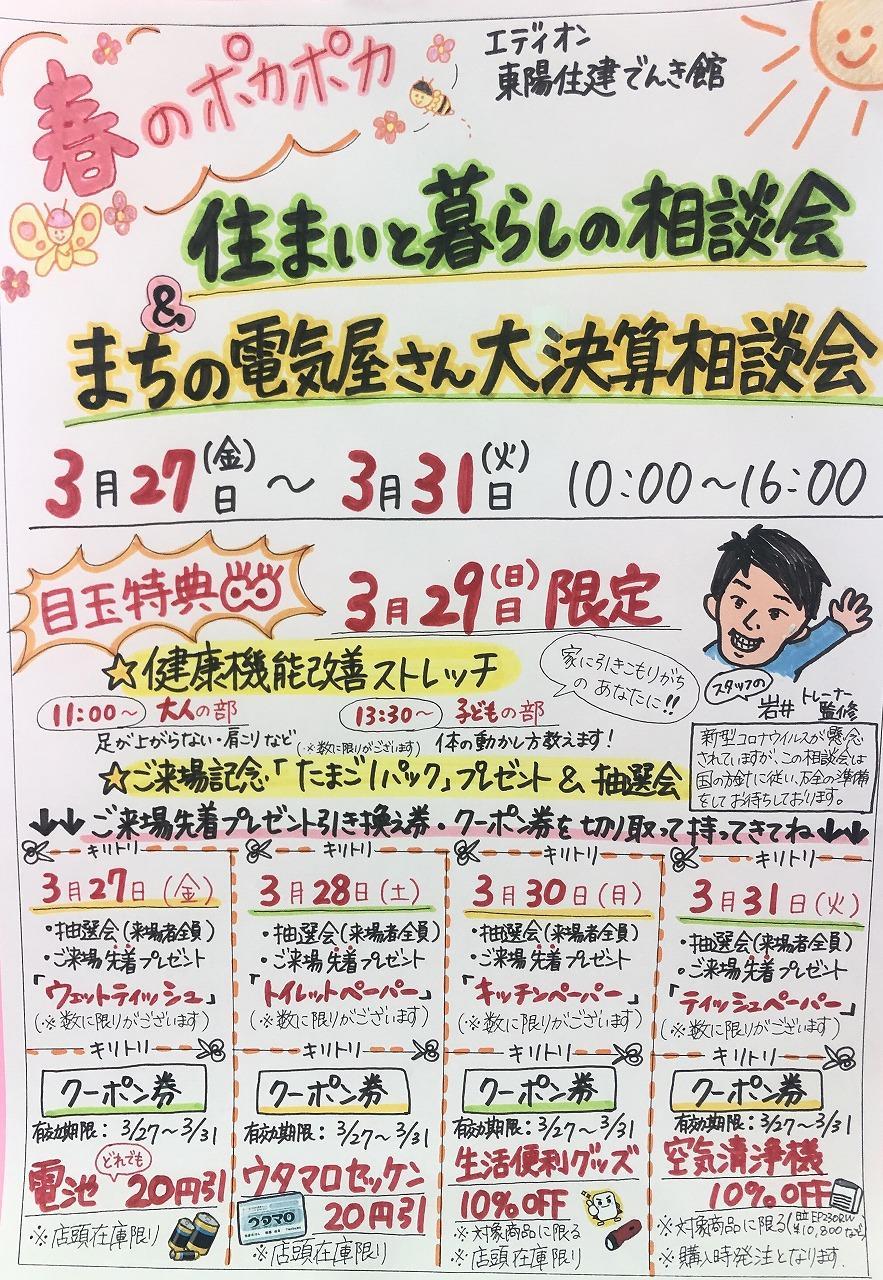 春のポカポカ
エディオン
東陽住建でんき館
住まいと暮らしの相談会
&
まちの電気屋さん大決算相談会
3月27日(金)～3月31日(火) 10:00～16:00
目玉特典
3月29日(日)限定
☆健康機能改善ストレッチ
家に引きこもりがちのあなたに!!
11:00～ 大人の部
13:30～ 子どもの部
足が上がらない・肩こりなど(※数に限りがございます)
体の動かし方教えます!
スタッフの
岩井トレーナー監修
新型コロナウイルスが懸念
されていますが、この相談会は
国の方針に従い、万全の準備
をしてお待ちしております。
☆ご来場記念「たまご1パック」プレゼント&抽選会
↓↓ご来場先着プレゼント引き換え券・クーポン券を切り取って持ってきてね↓↓
キリトリ
3月27日(金)
・抽選会(来場者全員)
・ご来場先着プレゼント
「ウェットティッシュ」
(※数に限りがございます)
キリトリ
クーポン券
有効期限：3/27～3/31
電池 どれでも 20円引
※店頭在庫限り
キリトリ
3月28日(土)
・抽選会(来場者全員)
・ご来場先着プレゼント
「トイレットペーパー」
(※数に限りがございます)
キリトリ
クーポン券
有効期限：3/27～3/31
ウタマロセッケン
ウタマロ
20円引
※店頭在庫限り
キリトリ
3月30日(月)
・抽選会(来場者全員)
・ご来場先着プレゼント
「キッチンペーパー」
(※数に限りがございます)
キリトリ
クーポン券
有効期限：3/27～3/31
生活便利グッズ
10%OFF
※対象商品に限る
※店頭在庫限り
キリトリ
3月31日(火)
・抽選会(来場者全員)
・ご来場先着プレゼント
「ティッシュペーパー」
(※数に限りがございます)
キリトリ
クーポン券
有効期限：3/27～3/31
空気清浄機
10%OFF
※対象商品に限る(日立EP230RW
¥10,800など)
※購入時発注となります.